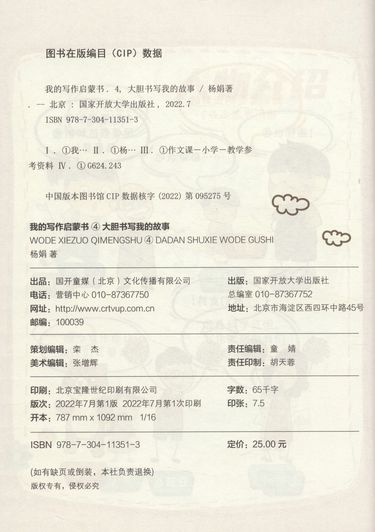 图书在版编目（CIP）数据
我的写作启蒙书. 4, 大胆书写我的故事 / 杨娟著
. — 北京 : 国家开放大学出版社, 2022.7
ISBN 978-7-304-11351-3
Ⅰ. ①我… Ⅱ. ①杨… Ⅲ. ①作文课－小学－教学参
考资料 Ⅳ. ①G624.243
中国版本图书馆CIP数据核字（2022）第095275号
我的写作启蒙书 ④ 大胆书写我的故事
WODE XIEZUO QIMENGSHU ④ DADAN SHUXIE WODE GUSHI
杨娟 著
出品：国开童媒（北京）文化传播有限公司 出版：国家开放大学出版社
电话：营销中心 010-87367750 总编室 010-87367752
网址：http://www.crtvup.com.cn 地址：北京市海淀区西四环中路45号
邮编：100039
策划编辑：栾 杰 责任编辑：童 婧
美术编辑：张增辉 责任印制：胡天蓉
印刷：北京宝隆世纪印刷有限公司 字数：65千字
版次：2022年7月第1版 2022年7月第1次印刷 印张：7.5
开本：787 mm×1092 mm 1/16
ISBN 978-7-304-11351-3 定价：25.00 元
(如有缺页或倒装，本社负责退换)
版权专有，侵权必究